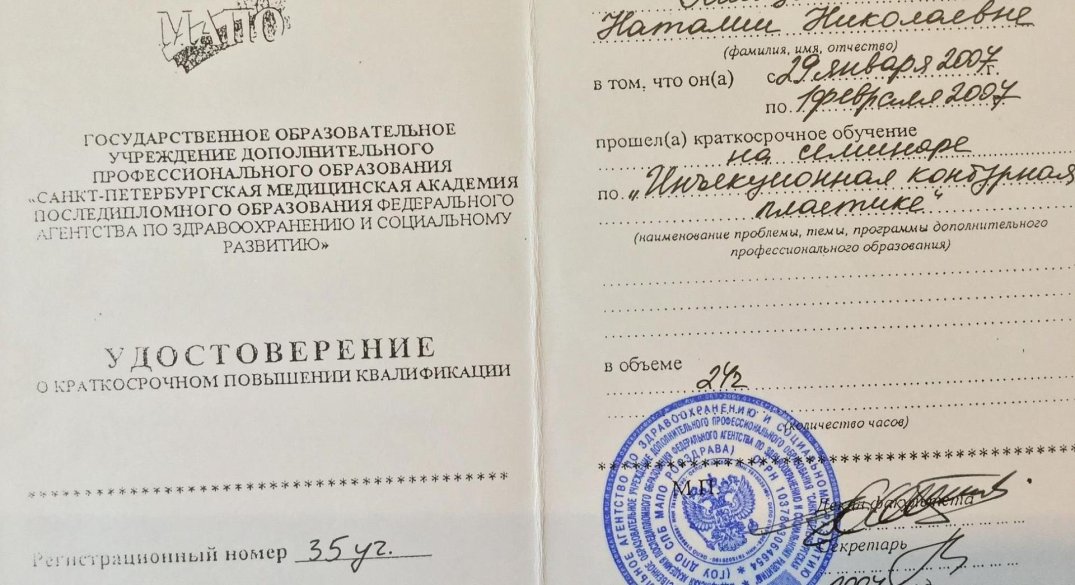 МАПО
ГОСУДАРСТВЕННОЕ ОБРАЗОВАТЕЛЬНОЕ
УЧРЕЖДЕНИЕ ДОПОЛНИТЕЛЬНОГО
ПРОФЕССИОНАЛЬНОГО ОБРАЗОВАНИЯ
«САНКТ-ПЕТЕРБУРГСКАЯ МЕДИЦИНСКАЯ АКАДЕМИЯ
ПОСЛЕДИПЛОМНОГО ОБРАЗОВАНИЯ ФЕДЕРАЛЬНОГО
АГЕНТСТВА ПО ЗДРАВООХРАНЕНИЮ И СОЦИАЛЬНОМУ
РАЗВИТИЮ»
УДОСТОВЕРЕНИЕ
О КРАТКОСРОЧНОМ ПОВЫШЕНИИ КВАЛИФИКАЦИИ
Регистрационный номер 35 уч.
Наталии Николаевне
(фамилия, имя, отчество)
в том, что он(а) с 29 января 2007 г.
по. 1 февраля 2007
прошел(а) краткосрочное обучение
на семинаре
по. „Инъекционная контурная
пластике"
(наименование проблемы, темы, программы дополнительного
профессионального образования)
в объеме
24ч
(количество часов)
М.П.
Декан факультета
Секретарь
2007